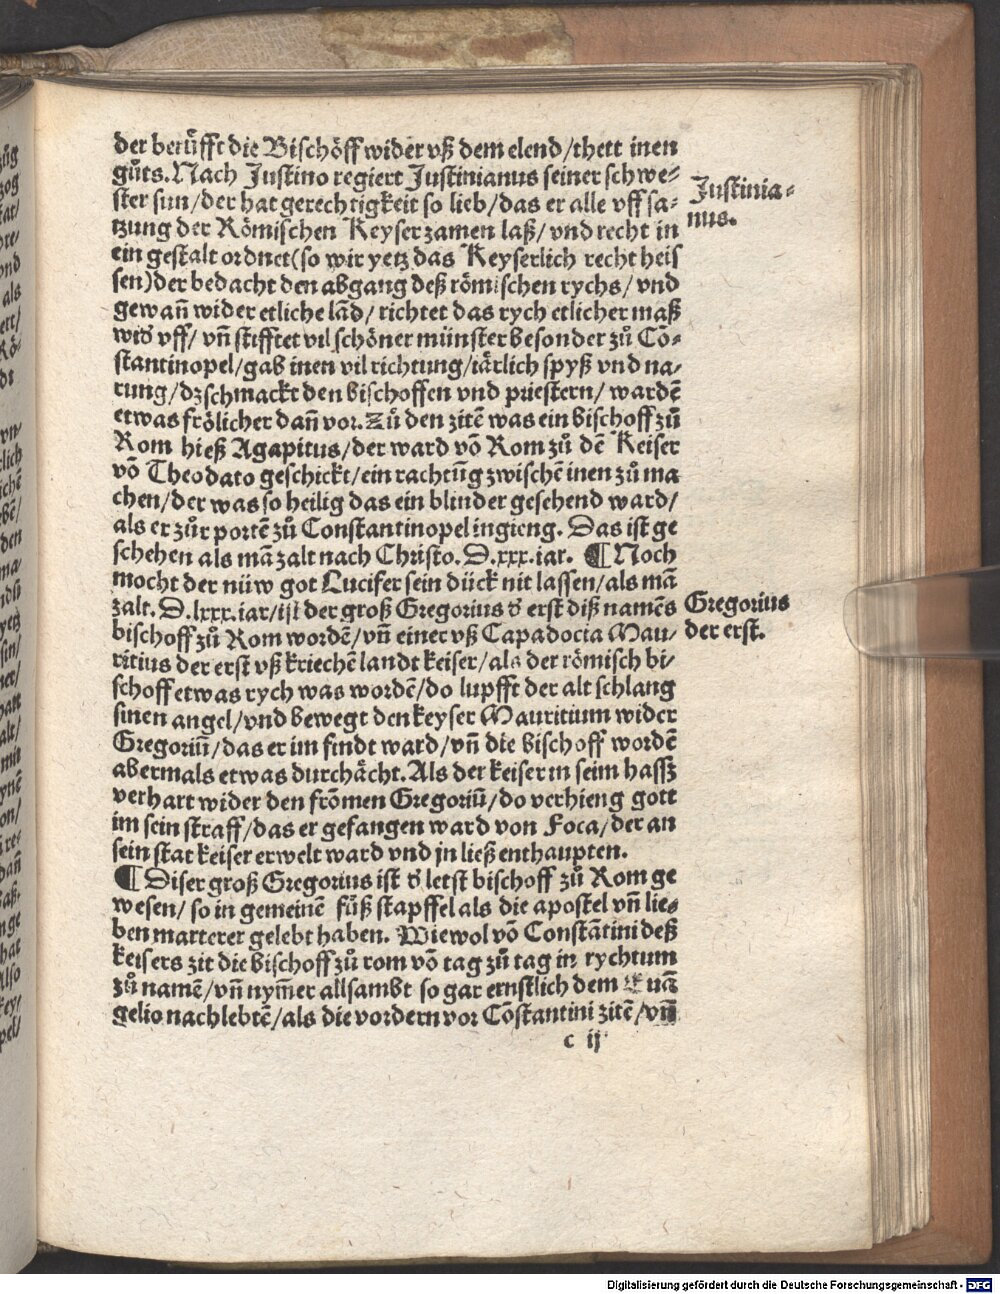 der berůfft die Bischöff wider vß dem elend/thett inen
gůts. Nach Justino regiert Justinianus seiner schwe⸗
ster sun/der hat gerechtigkeit so lieb/das er alle vffsa⸗
tzung der Römischen Keyser zamen laß/vnd recht in
ein gestalt ordnet(so wir yetz das Keyserlich recht heis
sen)der bedacht den abgang deß römischen rychs/vnd
gewañ wider etliche lãd/richtet das rych etlicher maß
widʼ vff/vñ stifftet vil schöner münster besonder zů Cõ⸗
stantinopel/gab inen vil richtung/iärlich spyß vnd na⸗
rung/dz schmackt den bischoffen vnd priestern/wardẽ
etwas frölicher dañ vor. Zů den zitẽ was ein bischoff zů
Rom hieß Agapitus/der ward võ Rom zů dẽ Keiser
võ Theodato geschickt/ein rachtũg zwischẽ inen zů ma
chen/der was so heilig das ein blinder gesehend ward/
als er zůr portẽ zů Constantinopel ingieng. Das ist ge
schehen als mã zalt nach Christo. D.xxx.iar. ¶ Noch
mocht der nüw got Lucifer sein dück nit lassen/als mã
zalt. D.lxxx.iar/ist der groß Gregorius dʼ erst diß namẽs
bischoff zů Rom wordẽ/vñ einer vß Capadocia Mau⸗
ritius der erst vß kriechẽ landt keiser/als der römisch bi⸗
schoff etwas rych was wordẽ/do lupfft der alt schlang
sinen angel/vnd bewegt den keyser Mauritium wider
Gregoriũ/das er im findt ward/vñ die bischoff wordẽ
abermals etwas durchächt. Als der keiser in seim hassz
verhart wider den frõmen Gregoriũ/do verhieng gott
im sein straff/das er gefangen ward von Foca/der an
sein stat keiser erwelt ward vnd jn ließ enthaupten.
¶ Diser groß Gregorius ist dʼ letst bischoff zů Rom ge
wesen/so in gemeinẽ fůß stapffel als die apostel vñ lie⸗
ben marterer gelebt haben. Wiewol võ Constãtini deß
keisers zit die bischoff zů rom võ tag zů tag in rychtum
zů namẽ/vñ nym̃er allsambt so gar ernstlich dem Euã
gelio nachlebtẽ/als die vordern vor Cõstantini zitẽ/vñ
c ij
Justinia⸗
nus.
Gregorius
der erst.
Digitalisierung gefördert durch die Deutsche Forschungsgemeinschaft - DFG